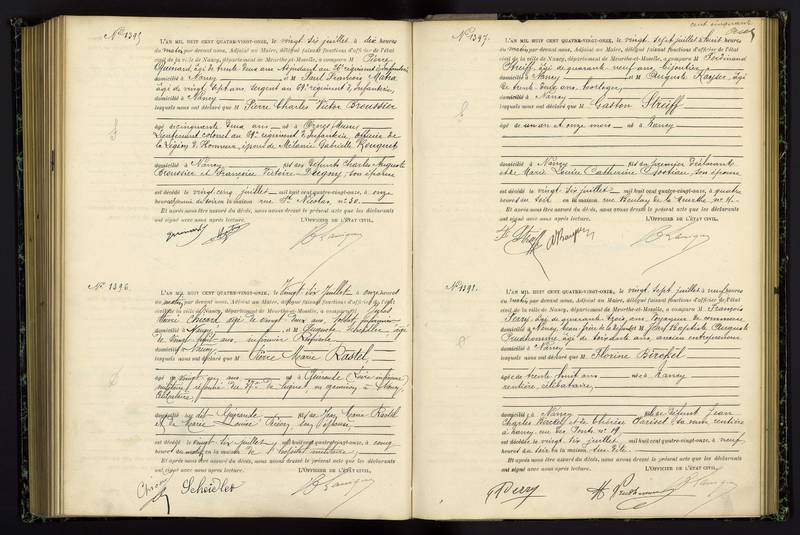 N° 1395
L'AN MIL HUIT CENT QUATRE-VINGT-ONZE, le vingt six juillet à dix heures
du matin par devant nous, Adjoint au Maire, délégué faisant fonctions d'officier de l'état
civil de la ville de Nancy, département de Meurthe-et-Moselle, a comparu M Pierre
âgé de trente deux ans
domicilié à Nancy et M Paul François
âgé de vingt sept ans, sergent au 69e régiment d'Infanterie,
domicilié à Nancy
lesquels nous ont déclaré que M Pierre Charles Victor Broussier
âgé de cinquante deux ans né à
Lieutenant colonel au 69e régiment d'Infanterie officier de
la Légion d'Honneur, époux de Mélanie Gabrielle
domicilié à Nancy fils des défunts Charles Auguste
Broussier et Françoise Victoire son épouse
est décédé le vingt cinq juillet mil huit cent quatre-vingt-onze, à onze
heures du soir en la maison rue St Nicolas, n° 30.
Et après nous être assuré du décès, nous avons dressé le présent acte que les déclarants
ont signé avec nous après lecture. L'OFFICIER DE L'ÉTAT CIVIL,
N° 1396
L'AN MIL HUIT CENT QUATRE-VINGT-ONZE, le vingt six juillet à onze heures
du matin, par devant nous, Adjoint au Maire, délégué faisant fonctions d'officier de l'état
civil de la ville de Nancy, département de Meurthe-et-Moselle, a comparu M
Marie âgé de vingt deux ans,
domicilié à Nancy et M Auguste Scheidler âgé
de vingt huit ans, infirmier
domicilié à Nancy
lesquels nous ont déclaré que Pierre Marie Rastel,
âgé de vingt ans né à Guérande (Loire inférieure
domicilié au dit Guérande fils de Jean Marie Rastel
et de Marie Louise son épouse
est décédé le vingt six juillet, mil huit cent quatre-vingt-onze, à cinq
heures du matin en la maison de l'hôpital militaire,
Et après nous être assuré du décès, nous avons dressé le présent acte que les déclarants
ont signé avec nous après lecture. L'OFFICIER DE L'ÉTAT CIVIL,
Scheidler
cent cinquante
N° 1397.
L'AN MIL HUIT CENT QUATRE-VINGT-ONZE, le vingt sept juillet à huit heures
du matin par devant nous, Adjoint au Maire, délégué faisant fonctions d'officier de l'état
civil de la ville de Nancy, département de Meurthe-et-Moselle, a comparu M Ferdinand
Streiff, âgé de quarante neuf ans, bijoutier,
domicilié à Nancy et M Auguste Kayser, âgé
de trente deux ans, horloger,
domicilié à Nancy
lesquels nous ont déclaré que M Gaston Streiff
âgé de un an et onze mois né à Nancy
domicilié à Nancy fils du premier déclarant
et de Marie Louise Catherine son épouse
est décédé le vingt six juillet mil huit cent quatre-vingt-onze, à quatre
heures du soir en la maison rue Boulay de la Meurthe n° 11.
Et après nous être assuré du décès, nous avons dressé le présent acte que les déclarants
ont signé avec nous après lecture. L'OFFICIER DE L'ÉTAT CIVIL,
N° 1398.
L'AN MIL HUIT CENT QUATRE-VINGT-ONZE, le vingt sept juillet à neuf heures
du matin par devant nous, Adjoint au Maire, délégué faisant fonctions d'officier de l'état
civil de la ville de Nancy, département de Meurthe-et-Moselle, a comparu M François
âgé de quarante trois ans, voyageur de commerce
domicilié à Nancy, beau frère de la défunte et M Joseph Baptiste Auguste
Prudhomme, âgé de soixante ans, ancien entrepreneur
domicilié à Nancy
lesquels nous ont déclaré que M Florine
âgée de trente huit ans née à Nancy
rentière, célibataire,
domiciliée à Nancy fille de défunt Jean
Charles et de Thérèse Parisot, sa veuve, rentière
à Nancy, rue des Ponts n° 19
est décédée le vingt six juillet, mil huit cent quatre-vingt-onze, à neuf
heures du soir en la maison sus dite.
Et après nous être assuré du décès, nous avons dressé le présent acte que les déclarants
ont signé avec nous après lecture. L'OFFICIER DE L'ÉTAT CIVIL,